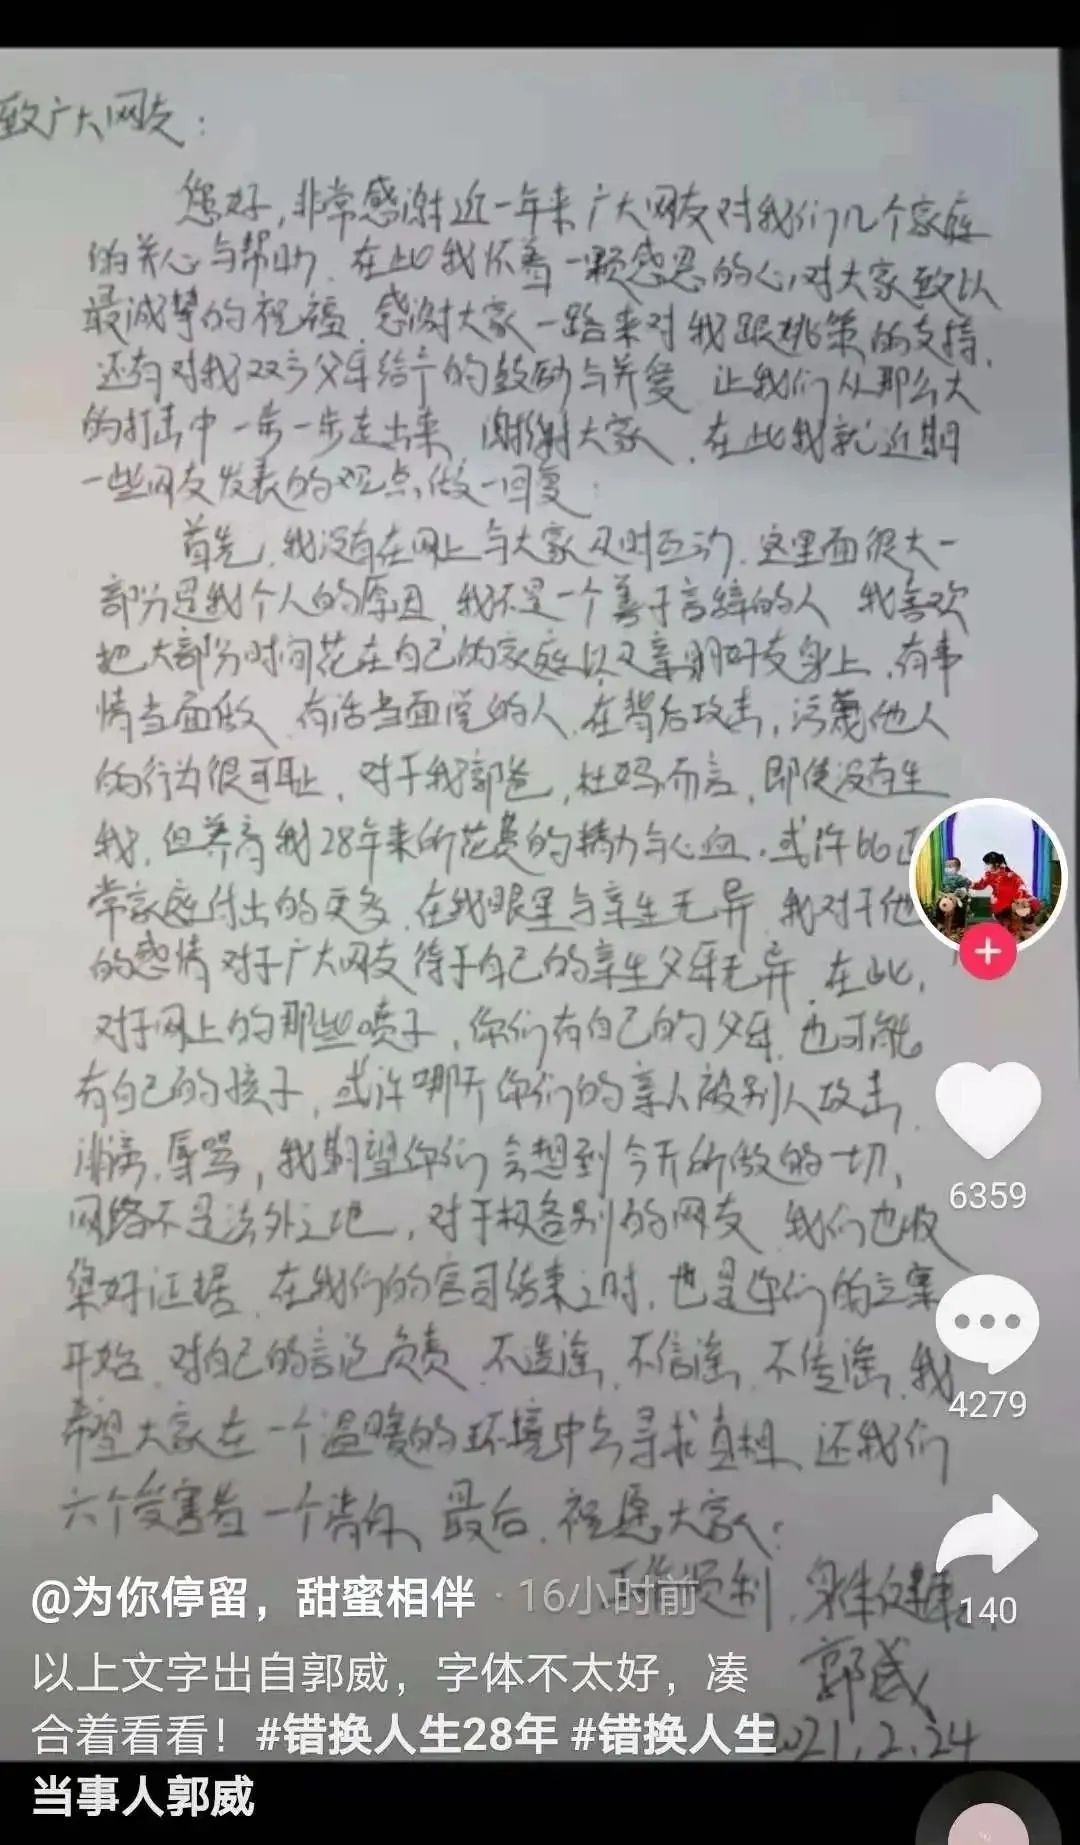 致广大网友：
您好，非常感谢近一年来广大网友对我们几个家庭
的关心与帮助，在此我怀着一颗感恩的心，对大家致以
最诚挚的祝福，感谢大家一路来对我跟姚策的支持，
还有对我双方父母给予的鼓励与关爱，让我们从那么大
的打击中一步一步走出来，谢谢大家，在此我就近期
一些网友发表的观点做一回复：
首先，我没有在网上与大家及时互动，这里面很大一
部分是我个人的原因，我不是一个善于言辞的人，我喜欢
把大部分时间花在自己的家庭以及亲朋好友身上，有事
情当面做，有话当面说的人，在背后攻击，污蔑他人
的行为很可耻，对于我郭爸，杜妈而言，即使没有生
我，但养育我28年来所花费的精力与心血，或许比正
常家庭付出的更多，在我眼里与亲生无异，我对于他
的感情对于广大网友待于自己的亲生父母无异，在此，
对于网上的那些喷子，你们有自己的父母，也可能
有自己的孩子，或许哪天你们的亲人被别人攻击，
诽谤，辱骂，我期望你们会想到今天所做的一切，
网络不是法外之地，对于极各别的网友，我们也收
集好证据，在我们的官司结束之时，也是你们的立案
开始，对自己的言论负责，不造谣，不信谣，不传谣，我
希望大家在一个温暖的环境中去寻求真相，还我们
六个受害者一个清白，最后，祝愿大家：
工作顺利，身体健康。
郭威
2021.2.24
6359
4279
140
@为你停留，甜蜜相伴 · 16小时前
以上文字出自郭威，字体不太好，凑
合着看看！#错换人生28年 #错换人生
当事人郭威